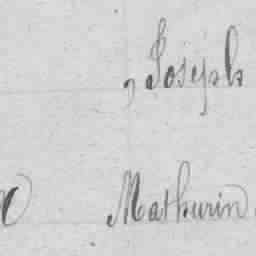 , Joseph
Mathurin